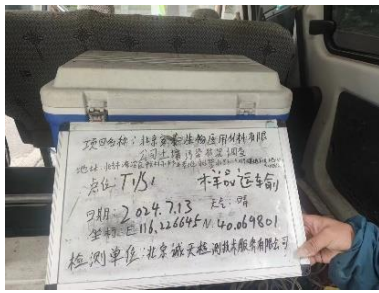 项目名称:北京 生物医用材料有限
公司土壤污染状况调查
地址:北京海淀
点位:T1/S1 样品运输
日期:2024.7.13 天气:晴
坐标:E116.226645 N:40.069801
检测单位:北京诚天检测技术服务有限公司